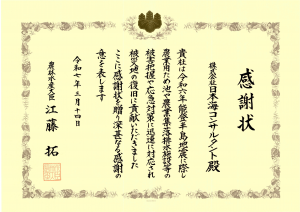 感謝状
株式会社日本海コンサルタント殿
貴社は令和六年能登半島地震に際し
農業用ため池や農業集落排水施設等の
被害把握や応急対策に迅速に対応され
被災地の復旧に貢献いただきました
ここに感謝状を贈り深甚なる感謝の
意を表します
令和七年三月十四日
農林水産大臣 江藤 拓